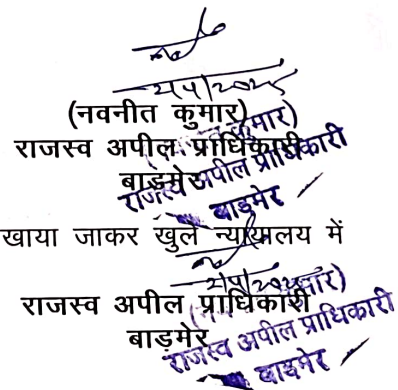 (नवनीत कुमार)
राजस्व अपील प्राधिकारी
बाड़मेर
राजस्व अपील प्राधिकारी
बाड़मेर
खाया जाकर खुले न्यायालय में
राजस्व अपील प्राधिकारी
बाड़मेर
राजस्व अपील प्राधिकारी
बाड़मेर